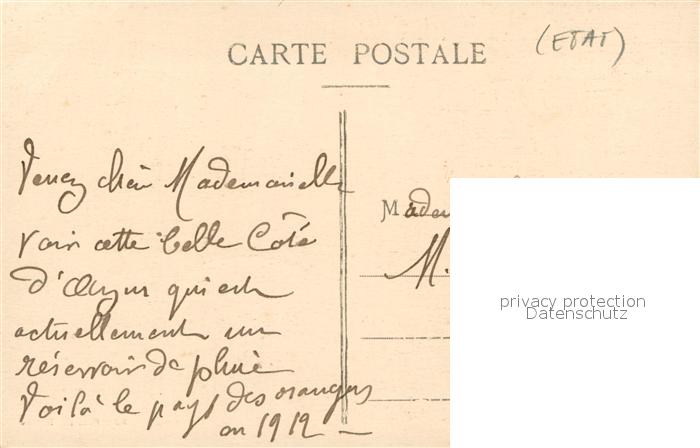 CARTE POSTALE
(ETAT)
Venez chère Mademoiselle
voir cette belle Côte
d'Azur qui est
actuellement un
réservoir de pluie
Voilà le pays des oranges
en 1912 —
Madem
M.
privacy protection
Datenschutz